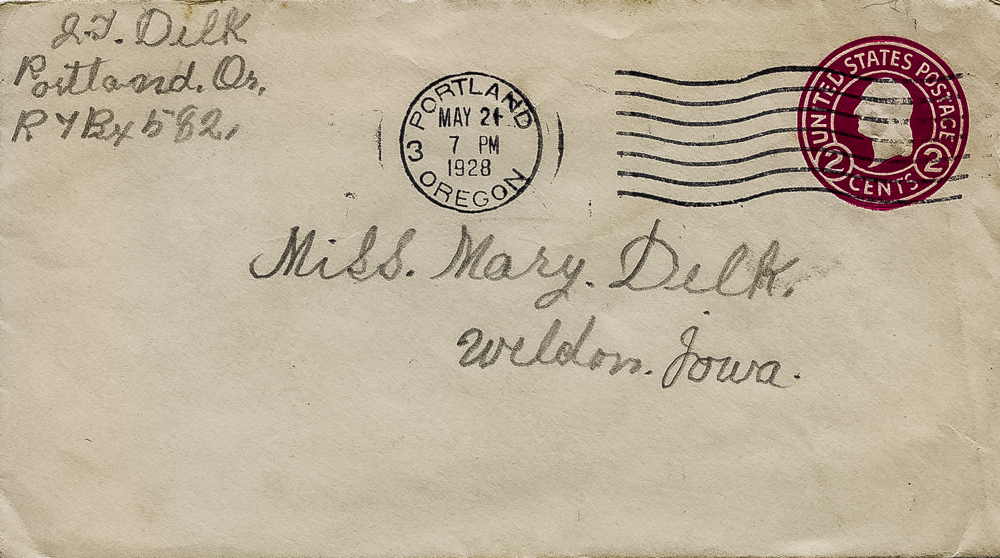 J.T. Delk
Portland. Or.
R 4 Bx 582.
PORTLAND
MAY
7 PM
1928
3
OREGON
UNITED STATES POSTAGE
2 CENTS 2
Miss. Mary. Delk.
Weldon. Iowa.